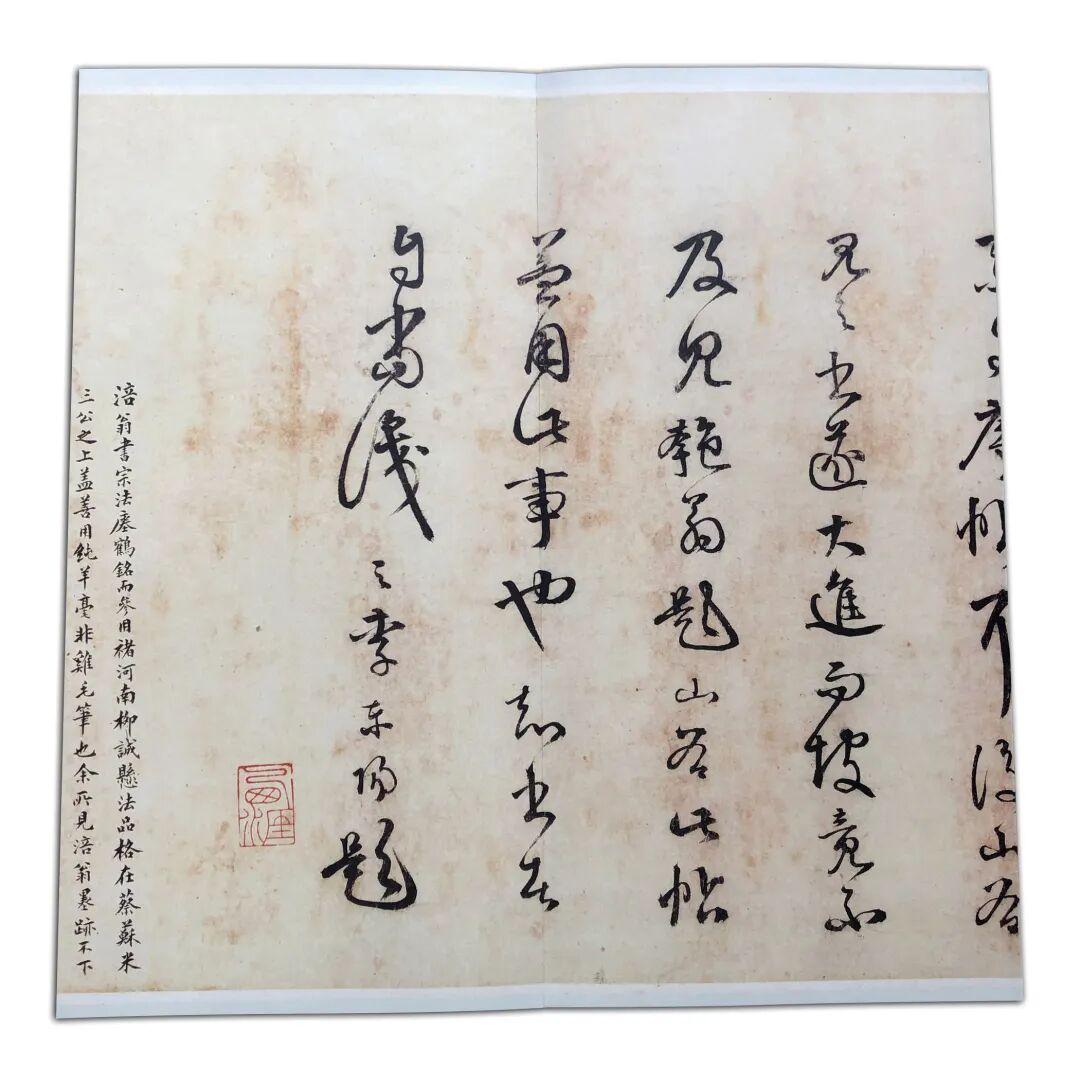 帖後山谷
見之書遂大進而坡竟不
及見匏翁題山谷此帖
蓋用此事也知書者
自當識之李東陽題
涪翁書宗法瘞鶴銘而參用褚河南柳誠懸法品格在蔡蘇米
三公之上蓋善用純羊毫非雞毛筆也余所見涪翁墨跡不下